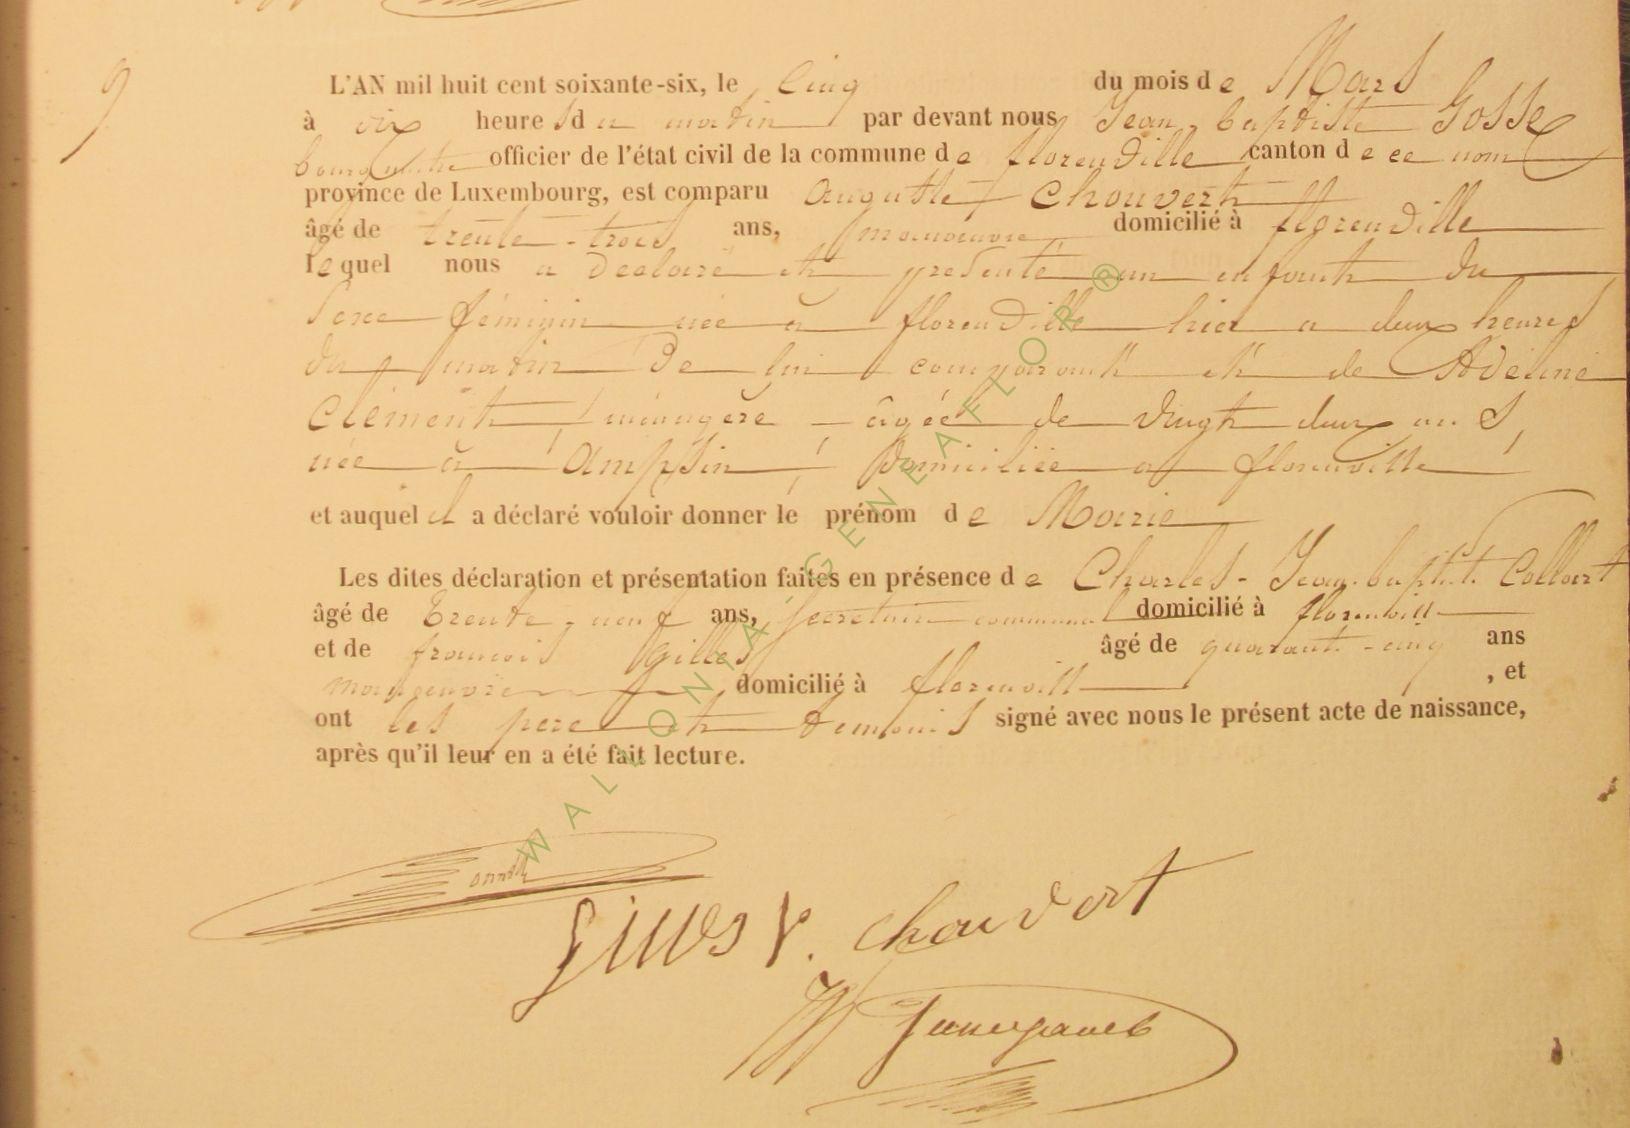 9
L'AN mil huit cent soixante-six, le Cinq du mois de Mars
à dix heures du matin par devant nous Jean-baptiste Gosse
bourgmestre officier de l'état civil de la commune de florenville canton de ce nom
province de Luxembourg, est comparu Auguste Chouvert
âgé de trente-trois ans, manoeuvre domicilié à florenville
lequel nous a declaré et presenté un enfant du
sexe féminin née à florenville hier a deux heures
du matin De lui comparant et de Adeline
Clément ménagère âgée de vingt deux ans,
née à Ampsin, domiciliée a florenville
et auquel il a déclaré vouloir donner le prénom de Marie
Les dites déclaration et présentation faites en présence de Charles-Jean-baptiste Collart
âgé de trente-neuf ans, secretaire communal domicilié à florenville
et de françois Gilles âgé de quarante-cinq ans
manoeuvre domicilié à florenville, et
ont les pere et temoins signé avec nous le présent acte de naissance,
après qu'il leur en a été fait lecture.
Gilles f. Chouvert
WALLONIA-GENEAFLOR®